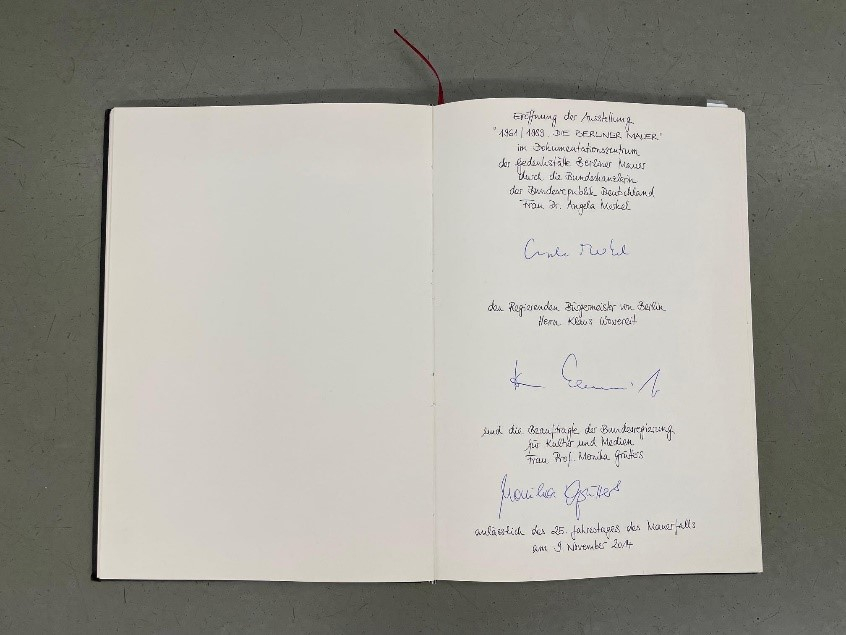 Eröffnung der Ausstellung
"1961/1989. DIE BERLINER MAUER"
im Dokumentationszentrum
der Gedenkstätte Berliner Mauer
durch die Bundeskanzlerin
der Bundesrepublik Deutschland
Frau Dr. Angela Merkel
den Regierenden Bürgermeister von Berlin
Herrn Klaus Wowereit
und die Beauftragte der Bundesregierung
für Kultur und Medien
Frau Prof. Monika Grütters
Monika Grütters
anlässlich des 25. Jahrestages des Mauerfalls
am 9 November 2014